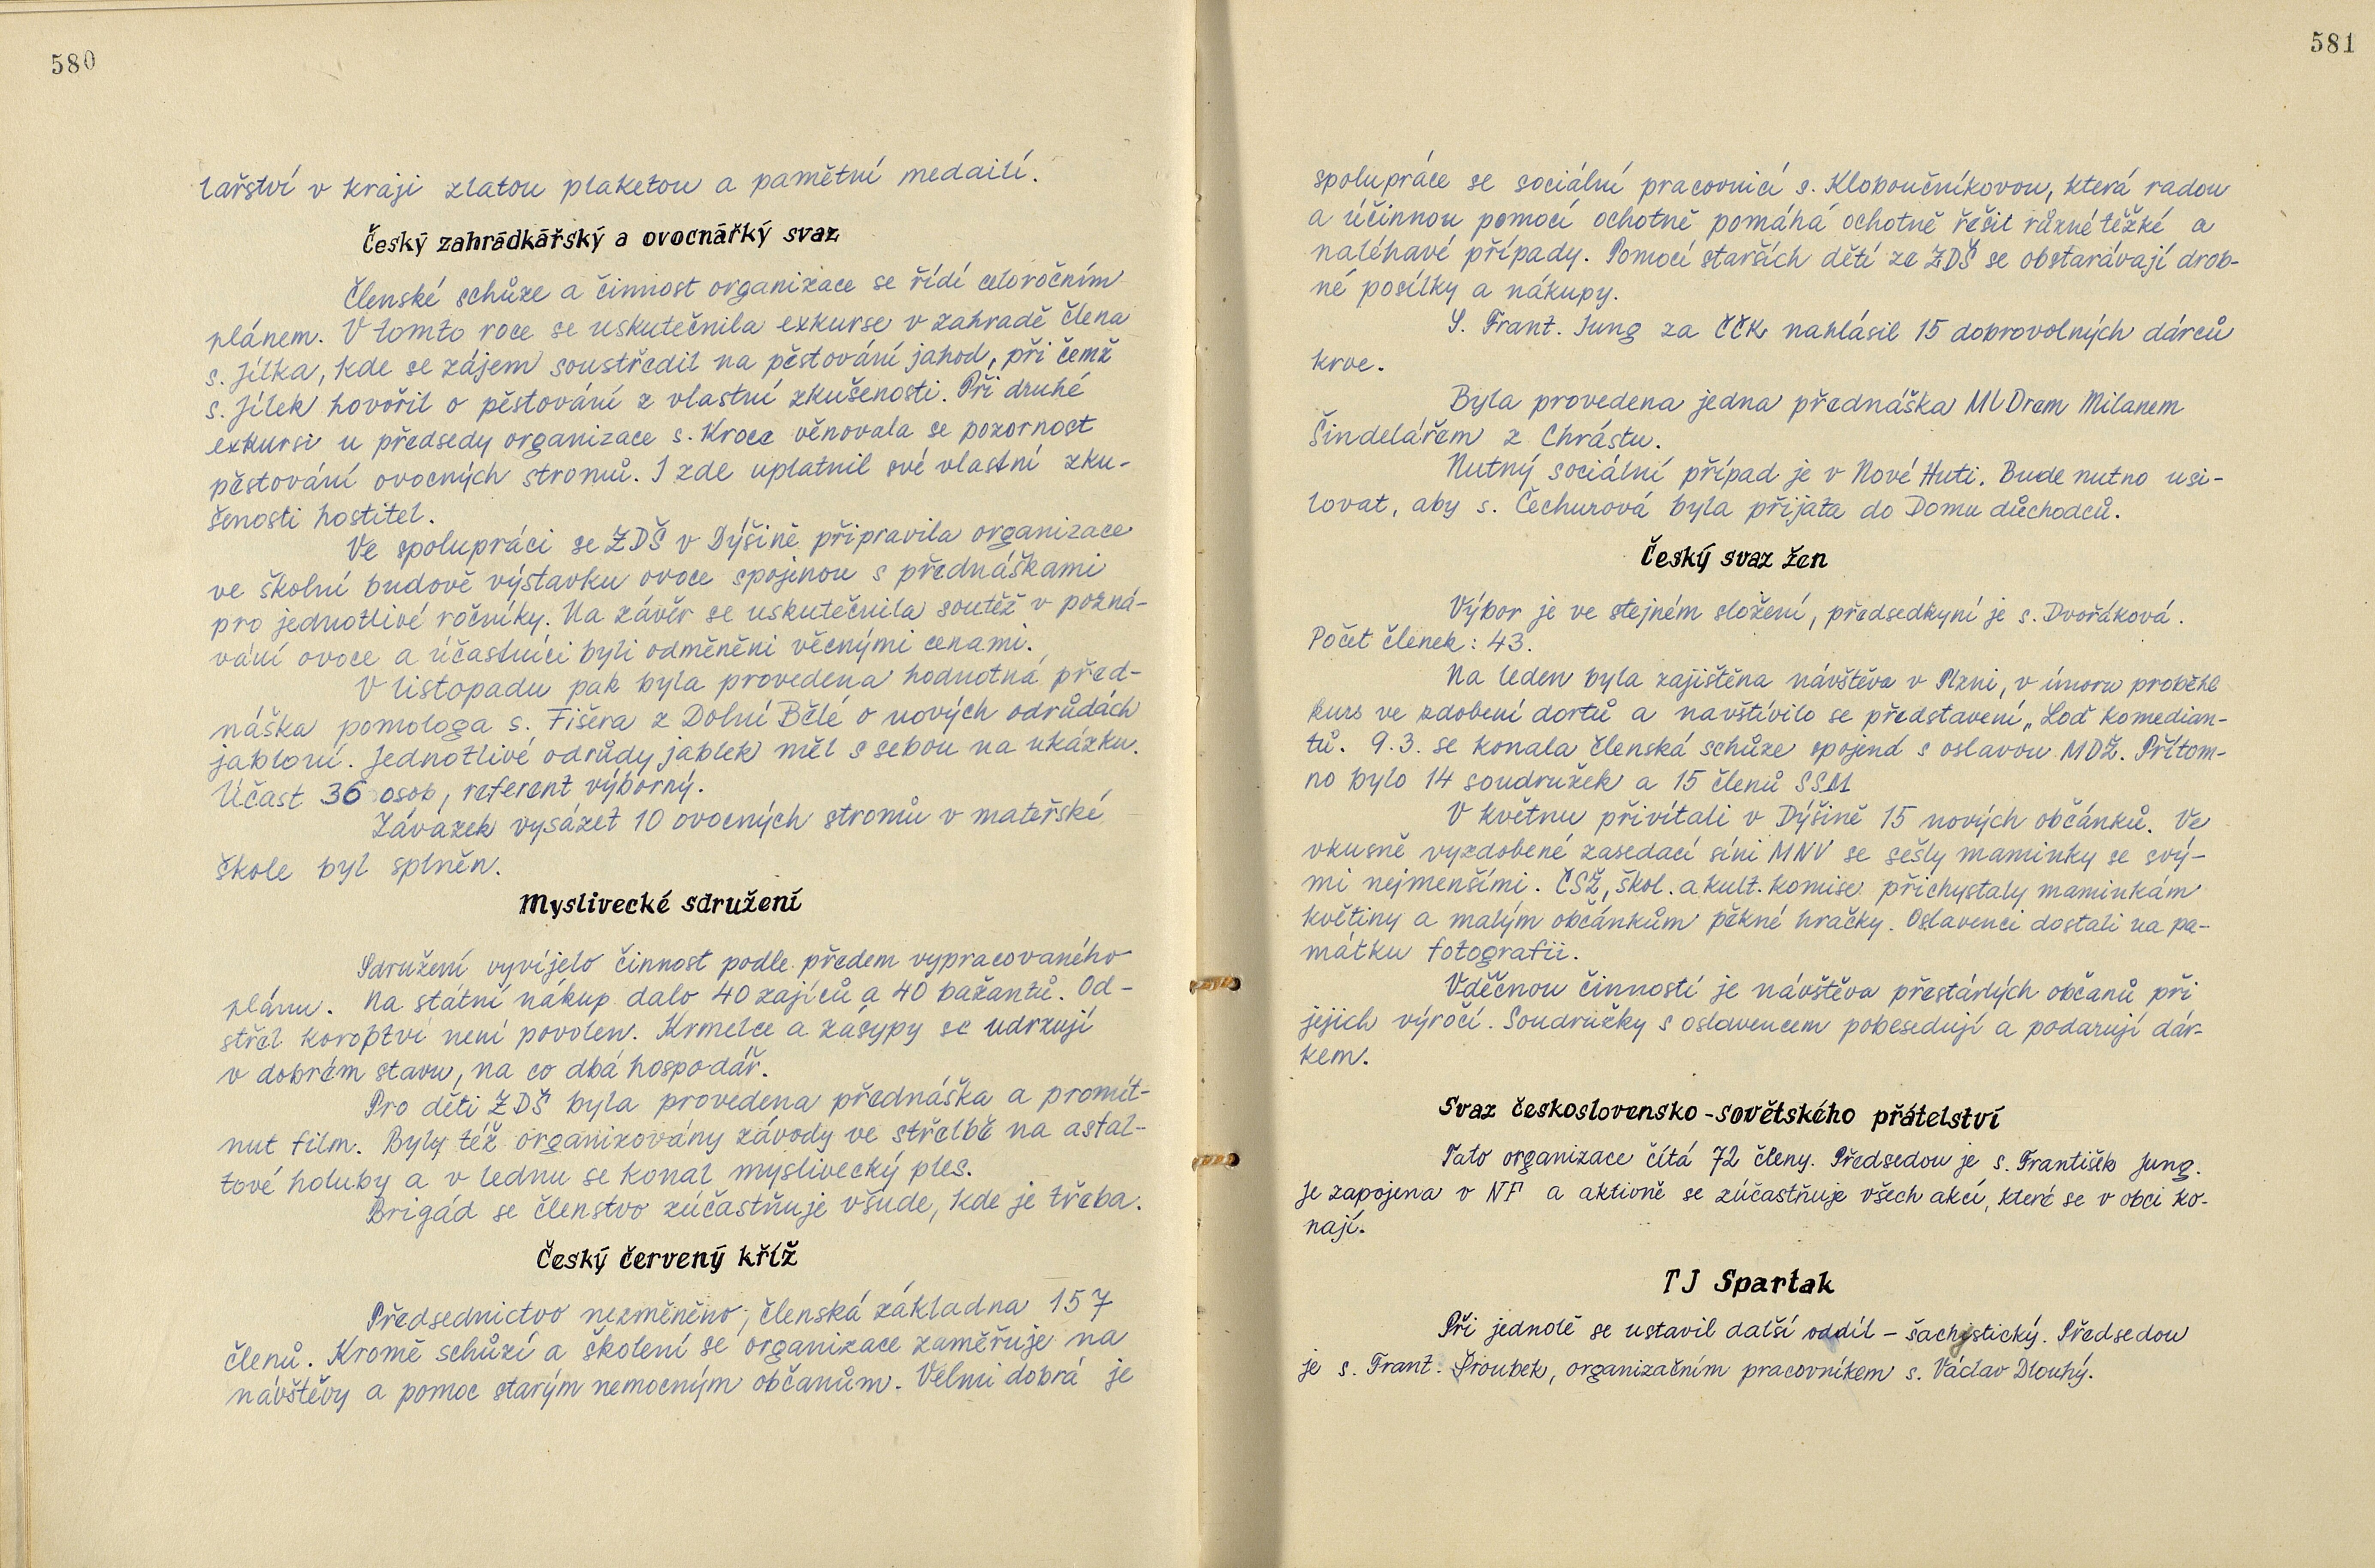 580
lařství v kraji zlatou plaketou a pamětní medailí.
Český zahrádkářský a ovocnářký svaz
Členské schůze a činnost organizace se řídí celoročním
plánem. V tomto roce se uskutečnila exkurse v zahradě člena
s. Jílka, kde se zájem soustředil na pěstování jahod, při čemž
s. Jílek hovořil o pěstování z vlastní zkušenosti. Při druhé
exkursi u předsedy organizace s. Kroce věnovala se pozornost
pěstování ovocných stromů. I zde uplatnil své vlastní zku-
šenosti hostitel.
Ve spolupráci se ZDŠ v Dýšině připravila organizace
ve školní budově výstavku ovoce spojenou s přednáškami
pro jednotlivé ročníky. Na závěr se uskutečnila soutěž v pozná-
vání ovoce a účastníci byli odměněni věcnými cenami.
V listopadu pak byla provedena hodnotná před-
náška pomologa s. Fišera z Dolní Bělé o nových odrůdách
jabloní. Jednotlivé odrůdy jablek měl s sebou na ukázku.
Účast 36 osob, referent výborný.
Závazek vysázet 10 ovocných stromů v mateřské
škole byl splněn.
Myslivecké sdružení
Sdružení vyvíjelo činnost podle předem vypracovaného
plánu. Na státní nákup dalo 40 zajíců a 40 bažantů. Od-
střel koroptví není povolen. Krmelce a zásypy se udrzují
v dobrém stavu, na co dbá hospodář.
Pro děti ZDŠ byla provedena přednáška a promít-
nut film. Byly též organizovány závody ve střelbě na asfal-
tové holuby a v lednu se konal myslivecký ples.
Brigád se členstvo zúčastňuje všude, kde je třeba.
Český červený kříž
Předsednictvo nezměněno, členská základna 157
členů. Kromě schůzí a školení se organizace zaměřuje na
návštěvy a pomoc starým nemocným občanům. Velmi dobrá je
581
spolupráce se sociální pracovnicí s. Kloboučníkovou, která radou
a účinnou pomocí ochotně pomáhá ochotně řešit různé těžké a
naléhavé případy. Pomocí starších dětí ze ZDŠ se obstarávají drob-
né posílky a nákupy.
S. Frant. Jung za ČČK nahlásil 15 dobrovolných dárců
krve.
Byla provedena jedna přednáška MUDrem Milanem
Šindelářem z Chrástu.
Nutný sociální případ je v Nové Huti. Bude nutno usi-
lovat, aby s. Čechurová byla přijata do Domu důchodců.
Český svaz žen
Výbor je ve stejném složení, předsedkyní je s. Dvořáková.
Počet členek: 43.
Na leden byla zajištěna návštěva v Plzni, v únoru proběhl
kurs ve zdobení dortů a navštívilo se představení „Loď komedian-
tů. 9.3. se konala členská schůze spojená s oslavou MDŽ. Přítom-
no bylo 14 soudružek a 15 členů SSM
V květnu přivítali v Dýšině 15 nových občánků. Ve
vkusně vyzdobené zasedací síni MNV se sešly maminky se svý-
mi nejmenšími. ČSŽ, škol. a kult. komise přichystaly maminkám
květiny a malým občánkům pěkné hračky. Oslavenci dostali na pa-
mátku fotografii.
Vděčnou činností je návštěva přestárlých občanů při
jejich výročí. Soudružky s oslavencem pobesedují a podarují dár-
kem.
Svaz československo-sovětského přátelství
Tato organizace čítá 72 členy. Předsedou je s. František Jung.
Je zapojena v NF a aktivně se zúčastňuje všech akcí, které se v obci ko-
nají.
TJ Spartak
Při jednotě se ustavil další oddíl – šachystický. Předsedou
je s. Frant. Šroubek, organizačním pracovníkem s. Václav Dlouhý.